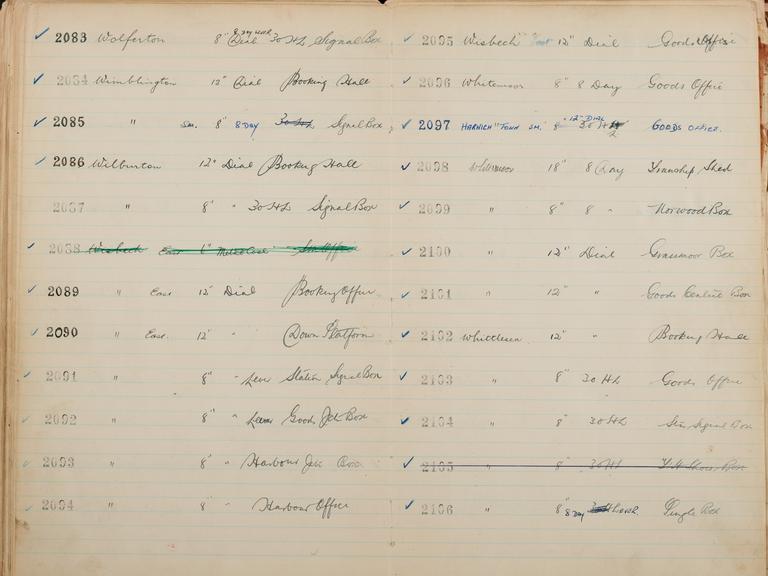 2083 Wolferton 8" 8 day work Dial 30 Hr Signal Box
2084 Wimblington 12" Dial Booking Hall
2085 " Sm. 8" 8 DAY 30 Hr Signal Box
2086 Wilburton 12" Dial Booking Hall
2087 " 8" " 30 Hr Signal Box
2088 Wisbech East 6" Metal Case Stn Office
2089 " East 12" Dial Booking Office
2090 " East. 12" " Down Platform
2091 " 8" " Station Signal Box
2092 " 8" " Goods Jct Box
2093 " 8" " Harbour Jct Box
2094 " 8" " Harbour Office
2095 Wisbech 12" Dial Goods Office
2096 Whitemoor 8" 8 Day Goods Office
2097 HARWICH "TOWN SM. 8" 12" DIAL 30 Hr GOODS OFFICE.
2098 Whitemoor 18" 8 Day Tranship Shed
2099 " 8" 8 " Norwood Box
2100 " 12" Dial Grassmoor Box
2101 " 12" " Goods Box
2102 Whittlesea 12" " Booking Hall
2103 " 8" 30 Hr Goods Office
2104 " 8" 30 Hr Stn Signal Box
2105 " 8" 30 Hr Box
2106 " 8" 8 Day 30 Hr Box